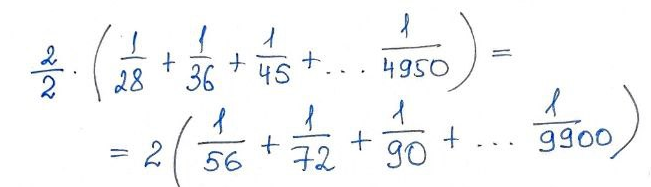 2/2 · (1/28 + 1/36 + 1/45 + ... 1/4950) =
= 2(1/56 + 1/72 + 1/90 + ... 1/9900)